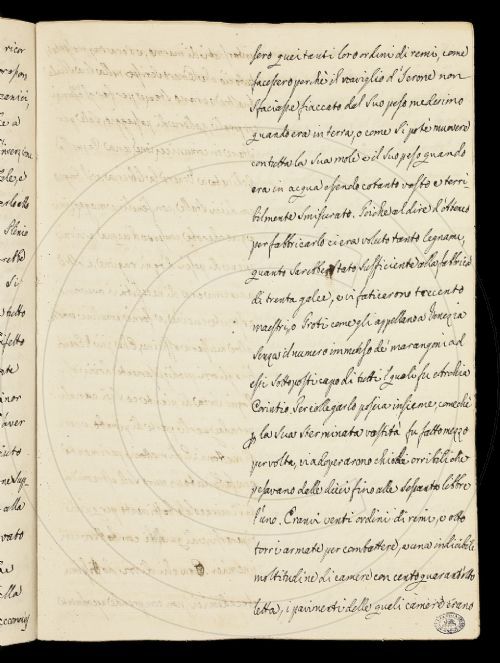 sero quei tanti loro ordini di remi, come
facessero perchè il naviglio d'Ierone non
sfaciasse fiaccato dal suo peso medesimo
quando era in terra, o come si potè muovere
con tutta la sua mole e il suo peso quando
era in acqua essendo cotanto vasto e terri
bilmente smisurato. Poichè al dire d'Ateneo
per fabbricarlo ci era voluto tanto legname,
quanto sarebbe stato sufficiente alla fabbrica
di trenta galee, e vi faticarono trecento
maestri, o Proti come gli appellano a Venezia
senza il numero immenso de' marangoni ad
essi sottoposti capo di tutti i quali fu Archia
Corintio. Per collegarlo poscia insieme, comechè
p la sua sterminata vastità fu fatto mezzo
per volta, vi adoperarono chiodi orribili che
pesavano dalle dieci fino alle sessanta libbre
l'uno. Eranvi venti ordini di remi, e otto
torri armate per combattere, e una indicibile
moltitudine di camere con cento quarant'otto
letta, i pavimenti delle quali camere erano
ricor
zenici,
e a
Plinio
Si
tutto
nor
alla
vato
ella